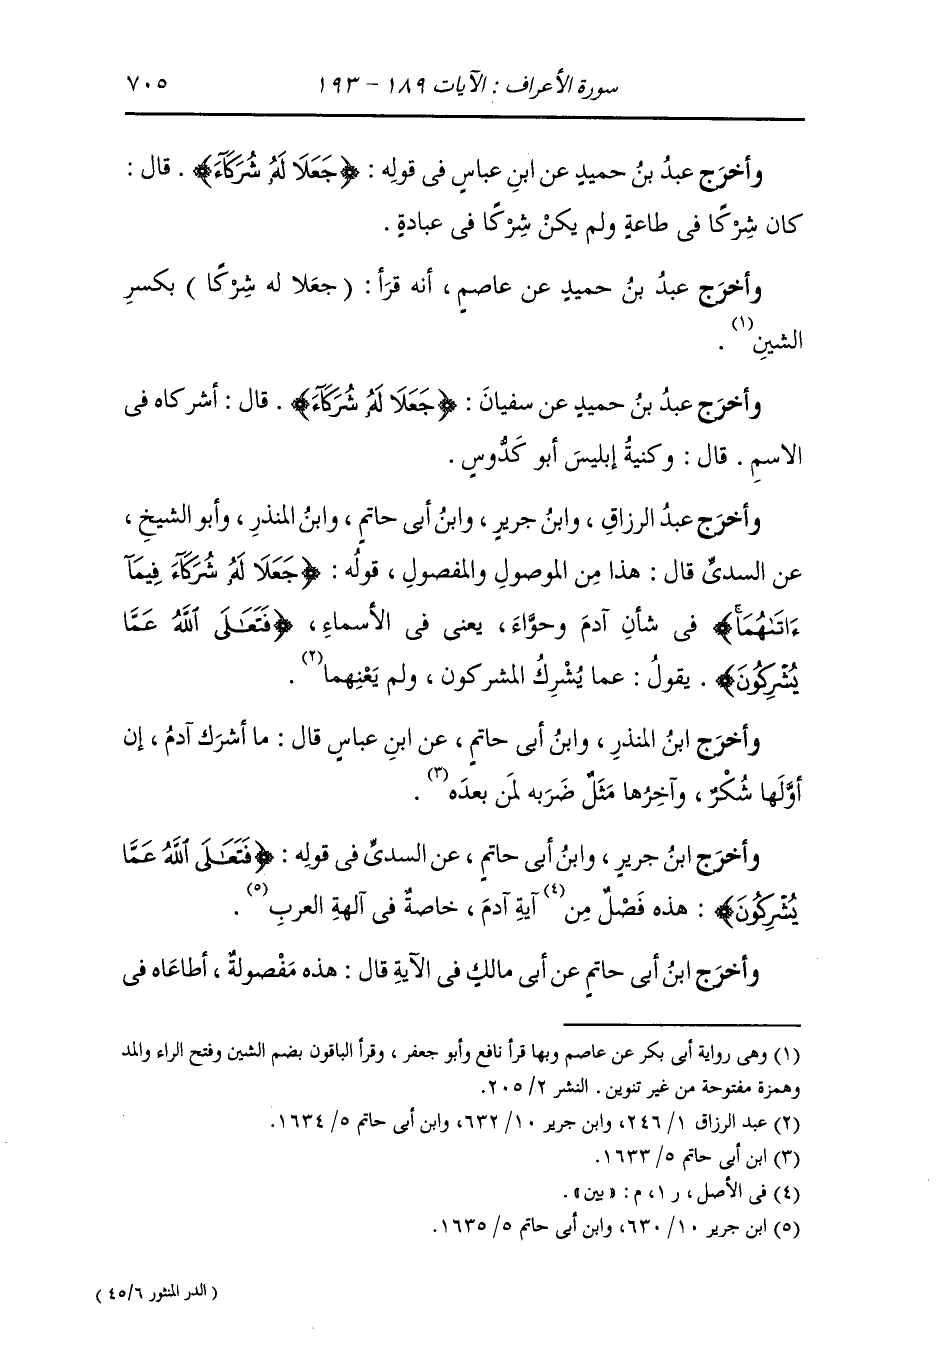 سورة الأعراف : الآيات ١٨٩ - ١٩٣ ٧٠٥
وأخرَج عبدُ بنُ حميدٍ عن ابنِ عباسٍ فى قولِه : ﴿جَعَلَا لَهُۥ شُرَكَآءَ﴾ . قال :
كان شِرْكًا فى طاعةٍ ولم يكنْ شِرْكًا فى عبادةٍ .
وأخرَج عبدُ بنُ حميدٍ عن عاصمٍ ، أنه قرَأ : ( جعَلا له شِرْكًا ) بكسرِ
الشينِ(١) .
وأخرَج عبدُ بنُ حميدٍ عن سفيانَ : ﴿جَعَلَا لَهُۥ شُرَكَآءَ﴾ . قال : أشركاه فى
الاسمِ . قال : وكنيةُ إبليسَ أبو كَدُّوسٍ .
وأخرَج عبدُ الرزاقِ ، وابنُ جريرٍ ، وابنُ أبى حاتمٍ ، وابنُ المنذرِ ، وأبو الشيخِ ،
عن السدىِّ قال : هذا مِن الموصولِ والمفصولِ ، قولُه : ﴿جَعَلَا لَهُۥ شُرَكَآءَ فِيمَآ
ءَاتَىٰهُمَاۚ﴾ فى شأنِ آدمَ وحوَّاءَ ، يعنى فى الأسماءِ ، ﴿فَتَعَـٰلَى ٱللَّهُ عَمَّا
يُشْرِكُونَ﴾ . يقولُ : عما يُشْرِكُ المشركون ، ولم يَعْنِهما(٢) .
وأخرَج ابنُ المنذرِ ، وابنُ أبى حاتمٍ ، عن ابنِ عباسٍ قال : ما أشرَك آدمُ ، إن
أوَّلَها شُكْرٌ ، وآخِرُها مَثَلٌ ضَرَبه لمَن بعدَه(٣) .
وأخرَج ابنُ جريرٍ ، وابنُ أبى حاتمٍ ، عن السدىِّ فى قولِه : ﴿فَتَعَـٰلَى ٱللَّهُ عَمَّا
يُشْرِكُونَ﴾ : هذه فَصْلٌ مِن(٤) آيةِ آدمَ ، خاصةٌ فى آلهةِ العربِ(٥) .
وأخرَج ابنُ أبى حاتمٍ عن أبى مالكٍ فى الآيةِ قال : هذه مَفْصولةٌ ، أطاعَاه فى
(١) وهى رواية أبى بكر عن عاصم وبها قرأ نافع وأبو جعفر ، وقرأ الباقون بضم الشين وفتح الراء والمد
وهمزة مفتوحة من غير تنوين . النشر ٢/ ٢٠٥.
(٢) عبد الرزاق ١/ ٢٤٦، وابن جرير ١٠/ ٦٣٢، وابن أبى حاتم ٥/ ١٦٣٤.
(٣) ابن أبى حاتم ٥/ ١٦٣٣.
(٤) فى الأصل ، ر ١، م : « بين » .
(٥) ابن جرير ١٠/ ٦٣٠، وابن أبى حاتم ٥/ ١٦٣٥.
( الدر المنثور ٤٥/٦ )